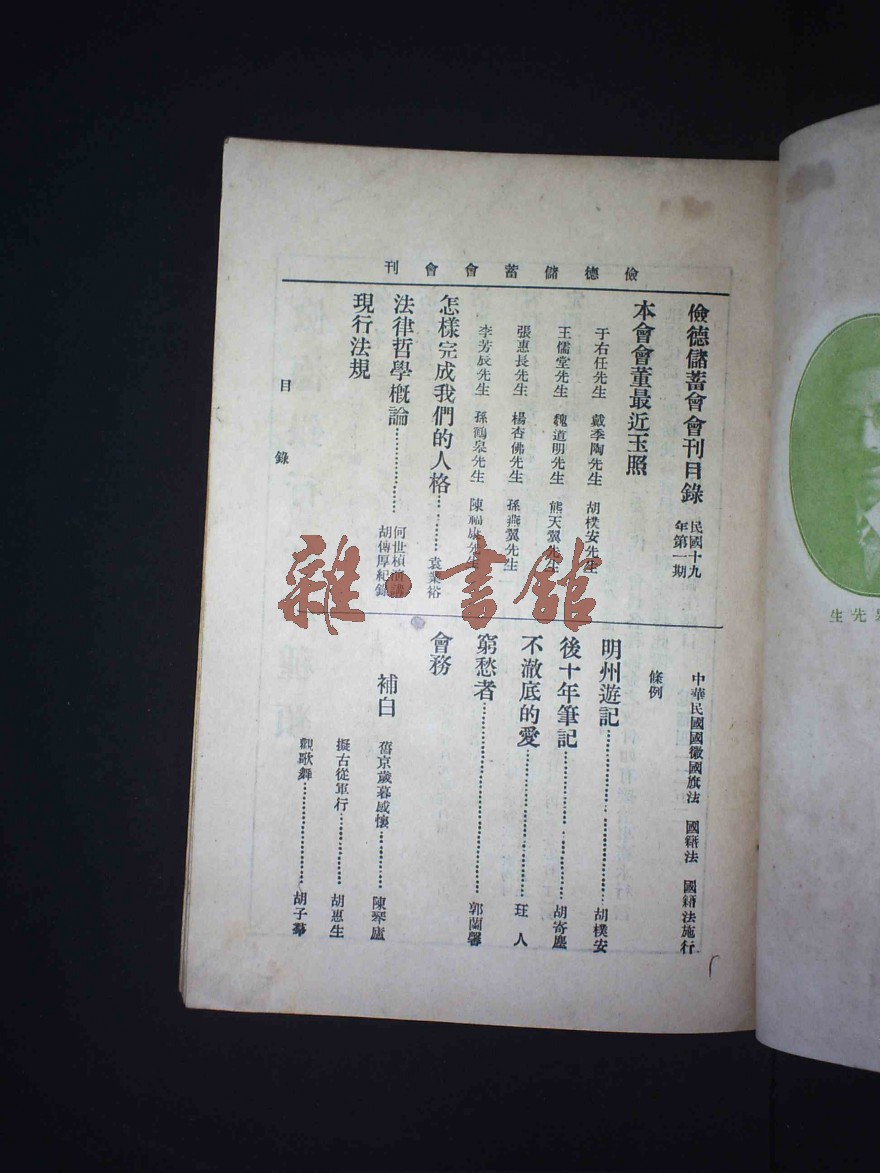 儉德儲蓄會會刊
儉德儲蓄會會刊目錄 民國十九年第一期
本會會董最近玉照
于右任先生 戴季陶先生 胡樸安先生
王儒堂先生 魏道明先生 熊天翼先生
張惠長先生 楊杏佛先生 孫燕翼先生
李芳辰先生 孫鶴皋先生 陳福康先生
怎樣完成我們的人格…………袁業裕
法律哲學概論…………何世楨演講
胡傳厚紀錄
現行法規
目錄
中華民國國徽國旗法 國籍法 國籍法施行
條例
明州遊記…………胡樸安
後十年筆記…………胡寄塵
不澈底的愛…………玨人
窮愁者…………郭蘭馨
會務
補白
舊京歲暮感懷…………陳琴廬
擬古從軍行…………胡惠生
觀歌舞…………胡子
雜·書館
先生